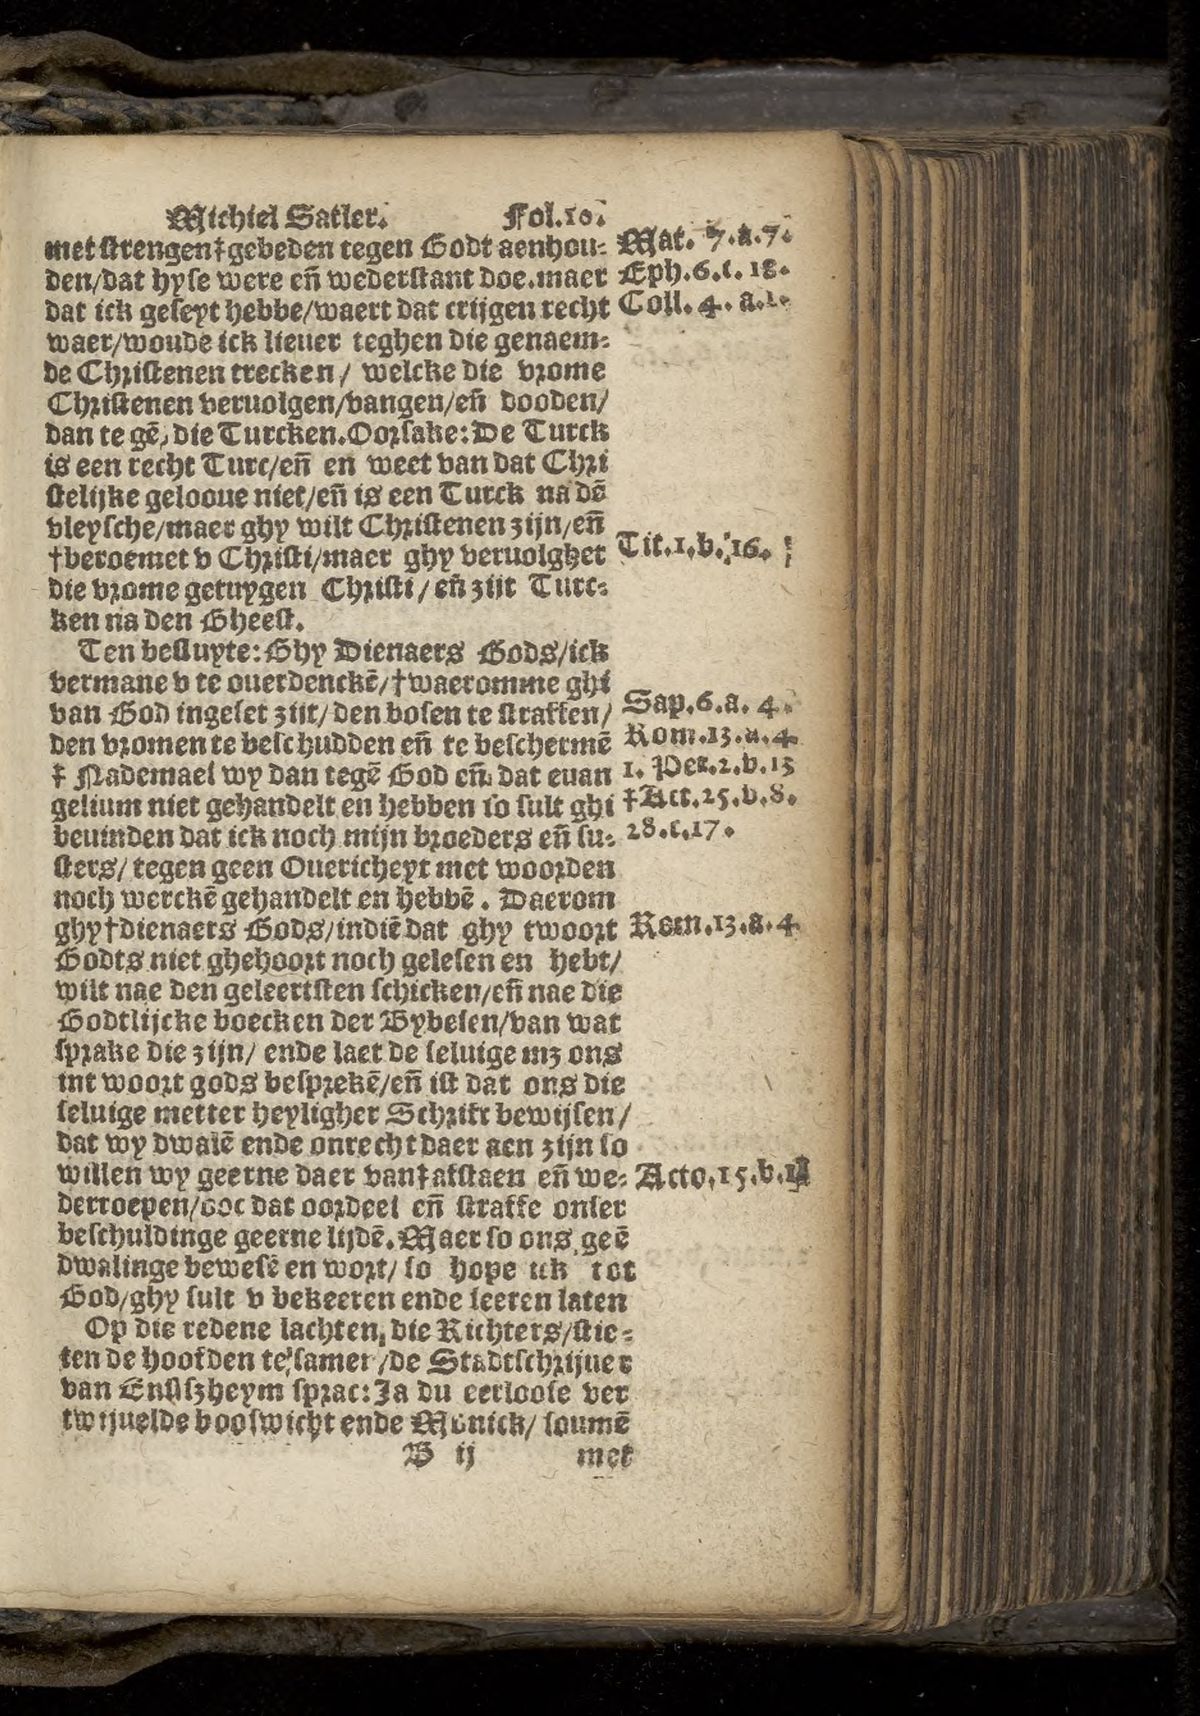 Michiel Satler. Fol.10.
met strengen†gebeden tegen Godt aenhou-
den/dat hyse were eñ wederstant doe.maer
dat ick geseyt hebbe/waert dat crijgen recht
waer/woude ick lieuer teghen die genaem-
de Christenen trecken/ welcke die vrome
Christenen veruolgen/vangen/eñ dooden/
dan te gē, die Turcken.Oorsake:De Turck
is een recht Turc/eñ en weet van dat Chri
stelijke gelooue niet/eñ is een Turck na dē
vleysche/maer ghy wilt Christenen zijn/eñ
†beroemet v Christi/maer ghy veruolghet
die vrome getuygen Christi/eñ zijt Turc-
ken na den Gheest.
Ten besluyte:Ghy Dienaers Gods/ick
vermane v te ouerdenckē/†waeromme ghi
van God ingeset zijt/den bosen te straffen/
den vromen te beschudden eñ te beschermē
‡ Nademael wy dan tegē God eñ dat euan
gelium niet gehandelt en hebben so sult ghi
beuinden dat ick noch mijn broeders eñ su-
sters/tegen geen Ouericheyt met woorden
noch werckē gehandelt en hebbē. Daerom
ghy†dienaers Gods/indiē dat ghy twoort
Godts niet ghehoort noch gelesen en hebt/
wilt nae den geleertsten schicken/eñ nae die
Godtlijcke boecken der Bybelen/van wat
sprake die zijn/ ende laet de seluige mz ons
int woort gods besprekē/eñ ist dat ons die
seluige metter heyligher Schrift bewijsen/
dat wy dwalē ende onrecht daer aen zijn so
willen wy geerne daer van†afstaen eñ we-
derroepen/ooc dat oordeel eñ straffe onser
beschuldinge geerne lijdē.Maer so ons geē
dwalinge bewesē en wort/ so hope ick tot
God/ghy sult v bekeeren ende leeren laten
Op die redene lachten die Richters/stie-
ten de hoofden te samen/de Stadtschrijuer
van Ensiszheym sprac:Ja du eerloose ver
twijuelde booswicht ende Monick/ soumē
B ij met
Mat. 7.a.7.
Eph.6.c.18.
Coll. 4. a.1.
Tit.1.b.16.
Sap.6.a. 4.
Rom.13.a.4.
1. Pet.2.b.13
‡Act.25.b.8.
28.c.17.
Rom.13.a.4.
Acto.15.b.